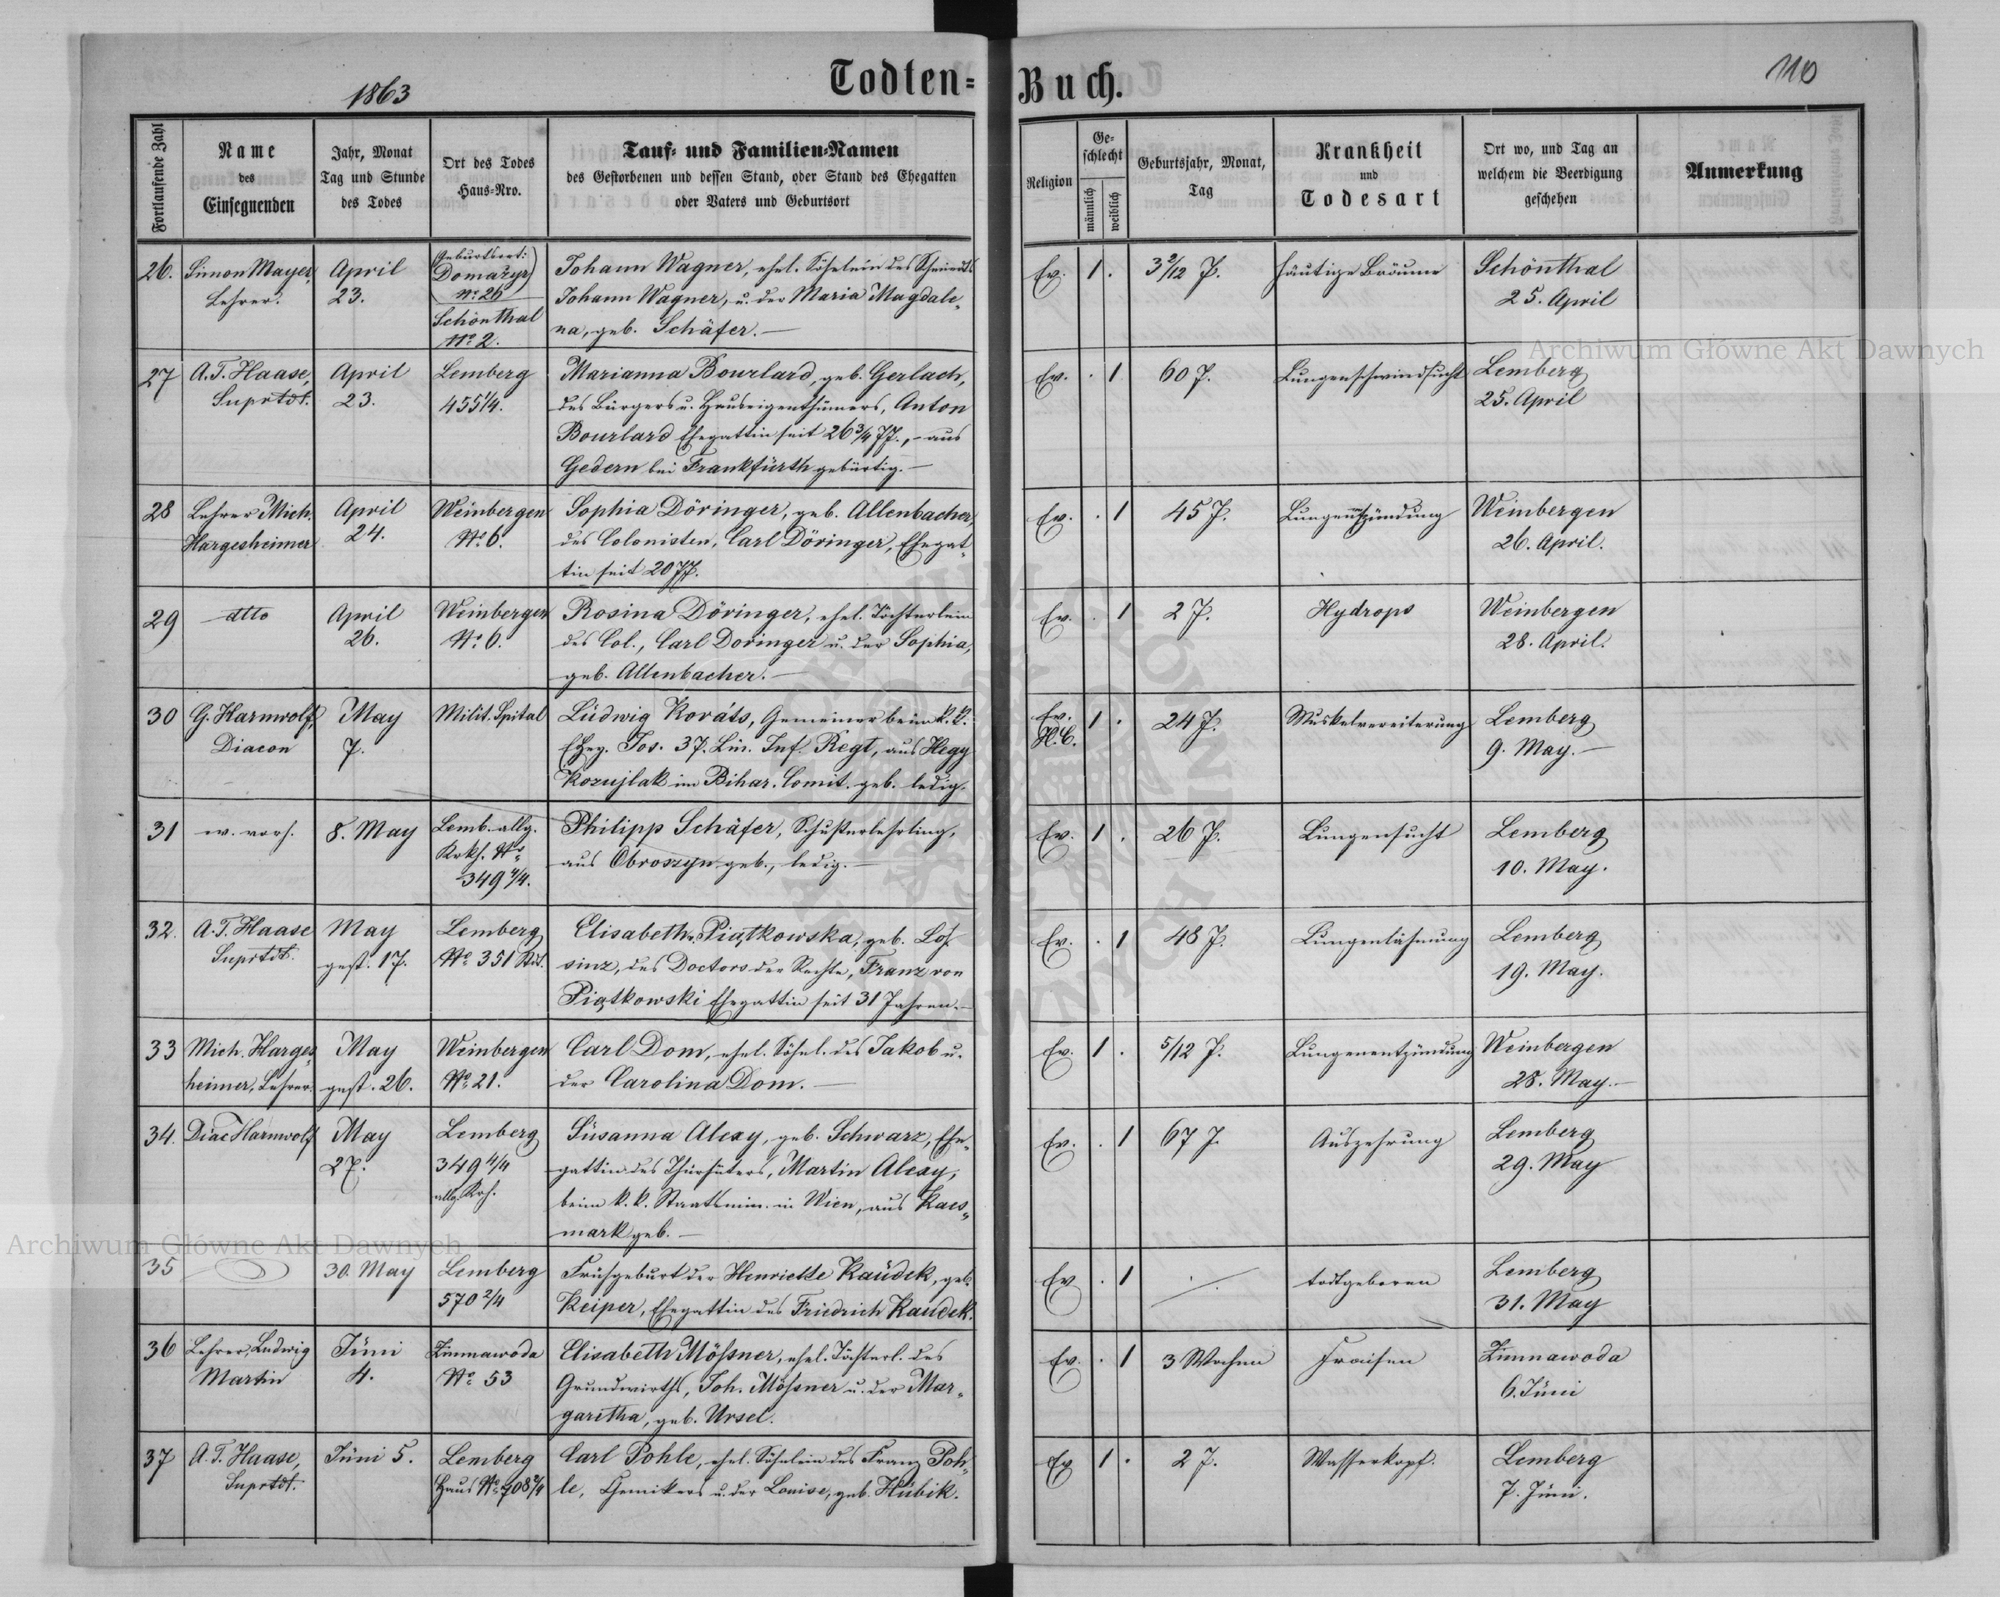 1863
Todten=Buch.
110
Fortlaufende Zahl
Name
des
Einsegnenden
Jahr, Monat
Tag und Stunde
des Todes
Ort des Todes
Haus-Nro.
Tauf- und Familien-Namen
des Gestorbenen und dessen Stand, oder Stand des Ehegatten
oder Vaters und Geburtsort
Religion
Ge-
schlecht
männlich
weiblich
Geburtsjahr, Monat,
Tag
Krankheit
und
Todesart
Ort wo, und Tag an
welchem die Beerdigung
geschehen
Anmerkung
26.
Simon Mayer,
Lehrer.
April
23.
Geburtsort:
Domažyr
No 26
Schönthal
No 2.
Johann Wagner, ehel. Söhnlein des Schmieds
Johann Wagner, u. der Maria Magdale-
na, geb. Schäfer. —
Ev.
1 .
3 2/12 J.
häutige Bräune
Schönthal
25. April
27
A. T. Haase,
Suprtdt.
April
23.
Lemberg
455 1/4.
Marianna Bourlard, geb. Gerlach,
des Bürgers u. Hauseigenthümers, Anton
Bourlard Ehegattin seit 26 3/4 JJ., – aus
Gedern bei Frankfürth gebürtig. —
Ev.
. 1
60 J.
Lungenschwindsucht
Lemberg
25. April
28
Lehrer Mich.
Hargesheimer
April
24.
Weinbergen
No 6.
Sophia Döringer, geb. Allenbacher,
des Colonisten, Carl Döringer, Ehegat-
tin seit 20 JJ.
Ev.
. 1
45 J.
Lungenentzündung
Weinbergen
26. April.
29
dtto
April
26.
Weinbergen
No 6.
Rosina Döringer, ehel. Töchterlein
des Col., Carl Doringer u. der Sophia,
geb. Allenbacher. —
Ev.
. 1
2 J.
Hydrops
Weinbergen
28. April.
30
G. Harnwolf,
Diacon
May
7.
Milit. Spital
Lüdwig Kováts, Gemeiner beim k. k.
EHzg. Jos. 37. Lin. Inf. Regt, aus Hegy
Kozujlak im Bihar. Comit. geb. ledig.
Ev.
H. C.
1 .
24 J.
Muskelvereiterung
Lemberg
9. May. —
31
w. vorh.
8. May
Lemb. allg.
Krkh. No
349 4/4.
Philipp Schäfer, Schusterlehrling,
aus Obroszyn geb., ledig. —
Ev.
1 .
26 J.
Lungensucht
Lemberg
10. May.
32.
A. T. Haase
Suprtdt.
May
gest. 17.
Lemberg
No 351 Stdt.
Elisabeth v. Piątkowska, geb. Löf-
sinz, des Doctors der Rechte, Franz von
Piątkowski Ehegattin seit 31 Jahren. —
Ev.
. 1
48 J.
Lungenlähmung
Lemberg
19. May.
33
Mich. Harges-
heimer, Lehrer.
May
gest. 26.
Weinbergen
No 21.
Carl Dom, ehel. Söhnl. des Jakob u.
der Carolina Dom. —
Ev.
1 .
5/12 J.
Lungenentzündung
Weinbergen
28. May. —
34.
Diac Harnwolf
May
27.
Lemberg
349 4/4
allg. Krh.
Süsanna Alexy, geb. Schwarz, Ehe-
gattin des Thürhüters, Martin Alexy,
beim k. k. Staatsmin. in Wien, aus Kaes-
mark geb. —
Ev.
. 1
67 J.
Auszehrung
Lemberg
29. May
35
30. May
Lemberg
570 2/4
Frühgeburt der Henriette Kaüdek, geb.
Keiper, Ehegattin des Friedrich Kaudek.
Ev
. 1
todtgeboren
Lemberg
31. May
36
Lehrer, Ludwig
Martin
Jüni
4.
Zimnawoda
No 53
Elisabeth Mößner, ehel. Töchterl. des
Grundwirths, Joh. Mößner u. der Mar-
garitha, geb. Ursel.
Ev.
. 1
3 Wochen
Fraisen
Zimnawoda
6. Jüni
37
A. T. Haase,
Suprtdt.
Jüni 5.
Lemberg
Haus No 708 2/4
Carl Pohle, ehel. Söhnlein des Franz Poh-
le, Chemikers u. der Louise, geb. Hübik.
Ev
1 .
2 J.
Wasserkopf.
Lemberg
7. Jüni.
Archiwum Główne Akt Dawnych
Archiwum Główne Akt Dawnych